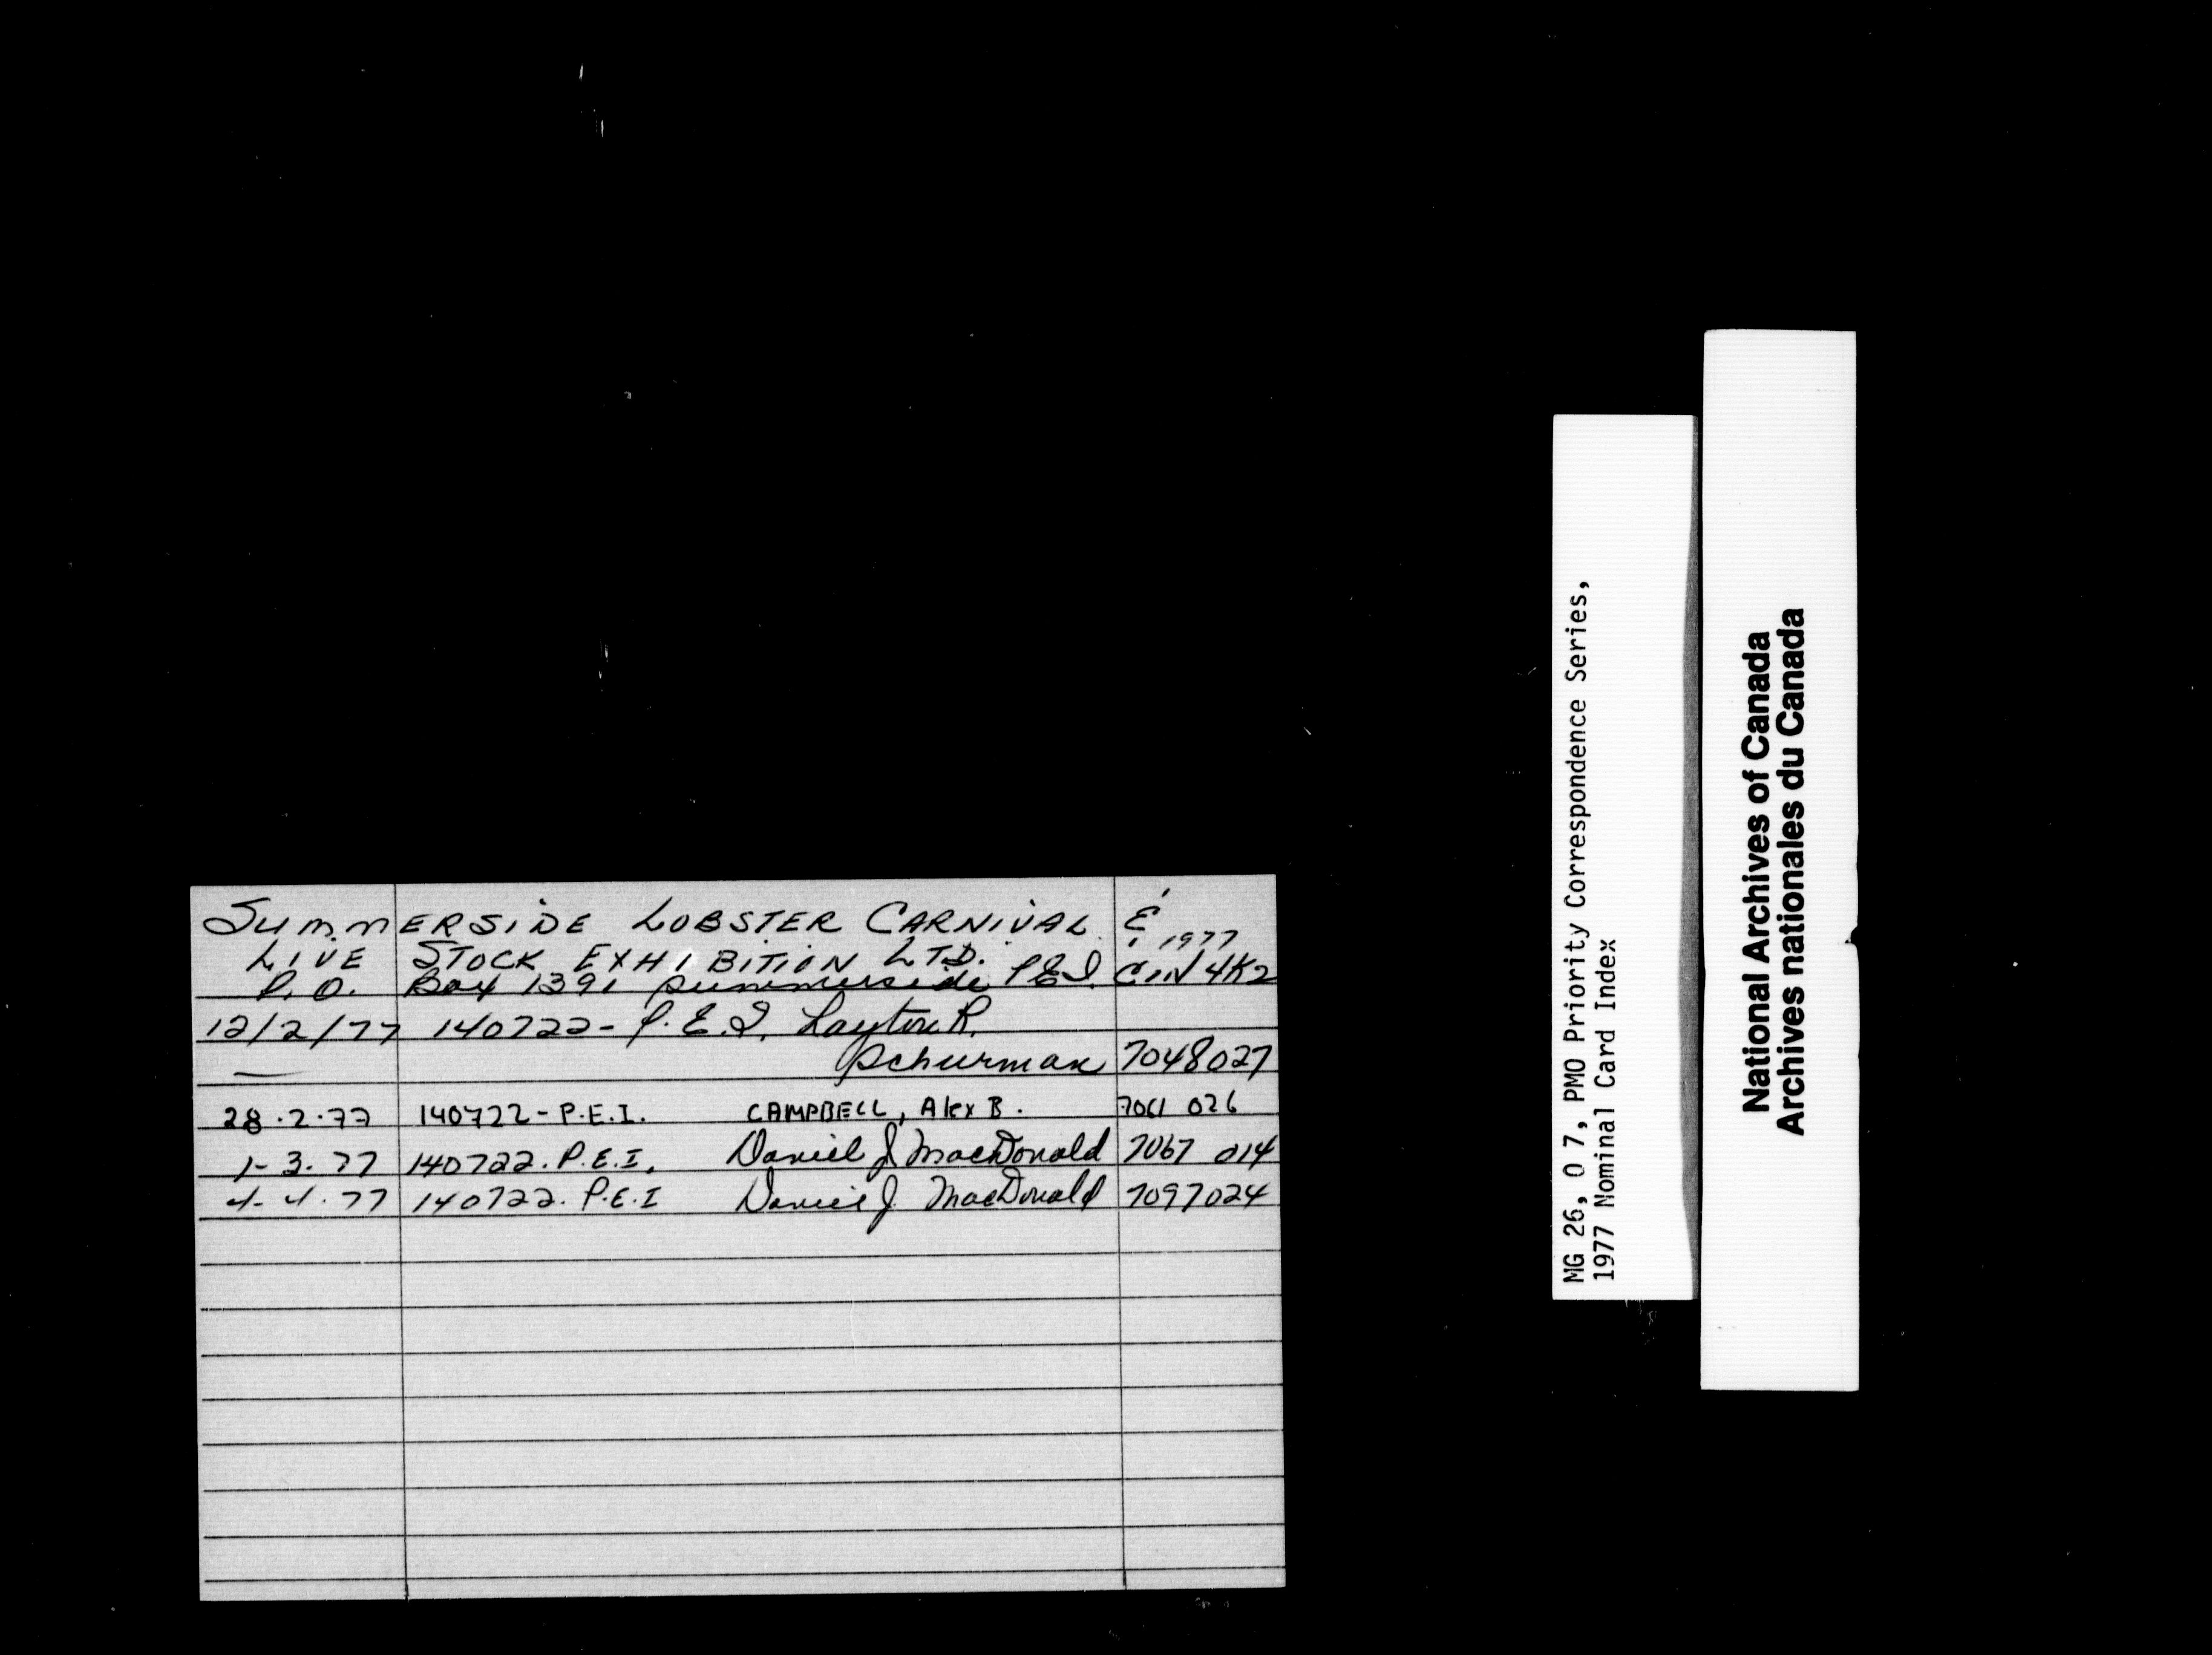 SUMMERSIDE LOBSTER CARNIVAL &
1977
LIVE STOCK EXHIBITION LTD.
P.O. Box 1391 Summerside P.E.I. C1N 4K2
12/2/77 140722 - P.E.I. Layton R.
Schurman 7048027
28.2.77 140722 - P.E.I. CAMPBELL, Alex B. 7061 026
1-3.77 140722. P.E.I. Daniel J MacDonald 7067 014
4-4.77 140722. P.E.I Daniel J. MacDonald 7097024
MG 26, O 7, PMO Priority Correspondence Series,
1977 Nominal Card Index
National Archives of Canada
Archives nationales du Canada